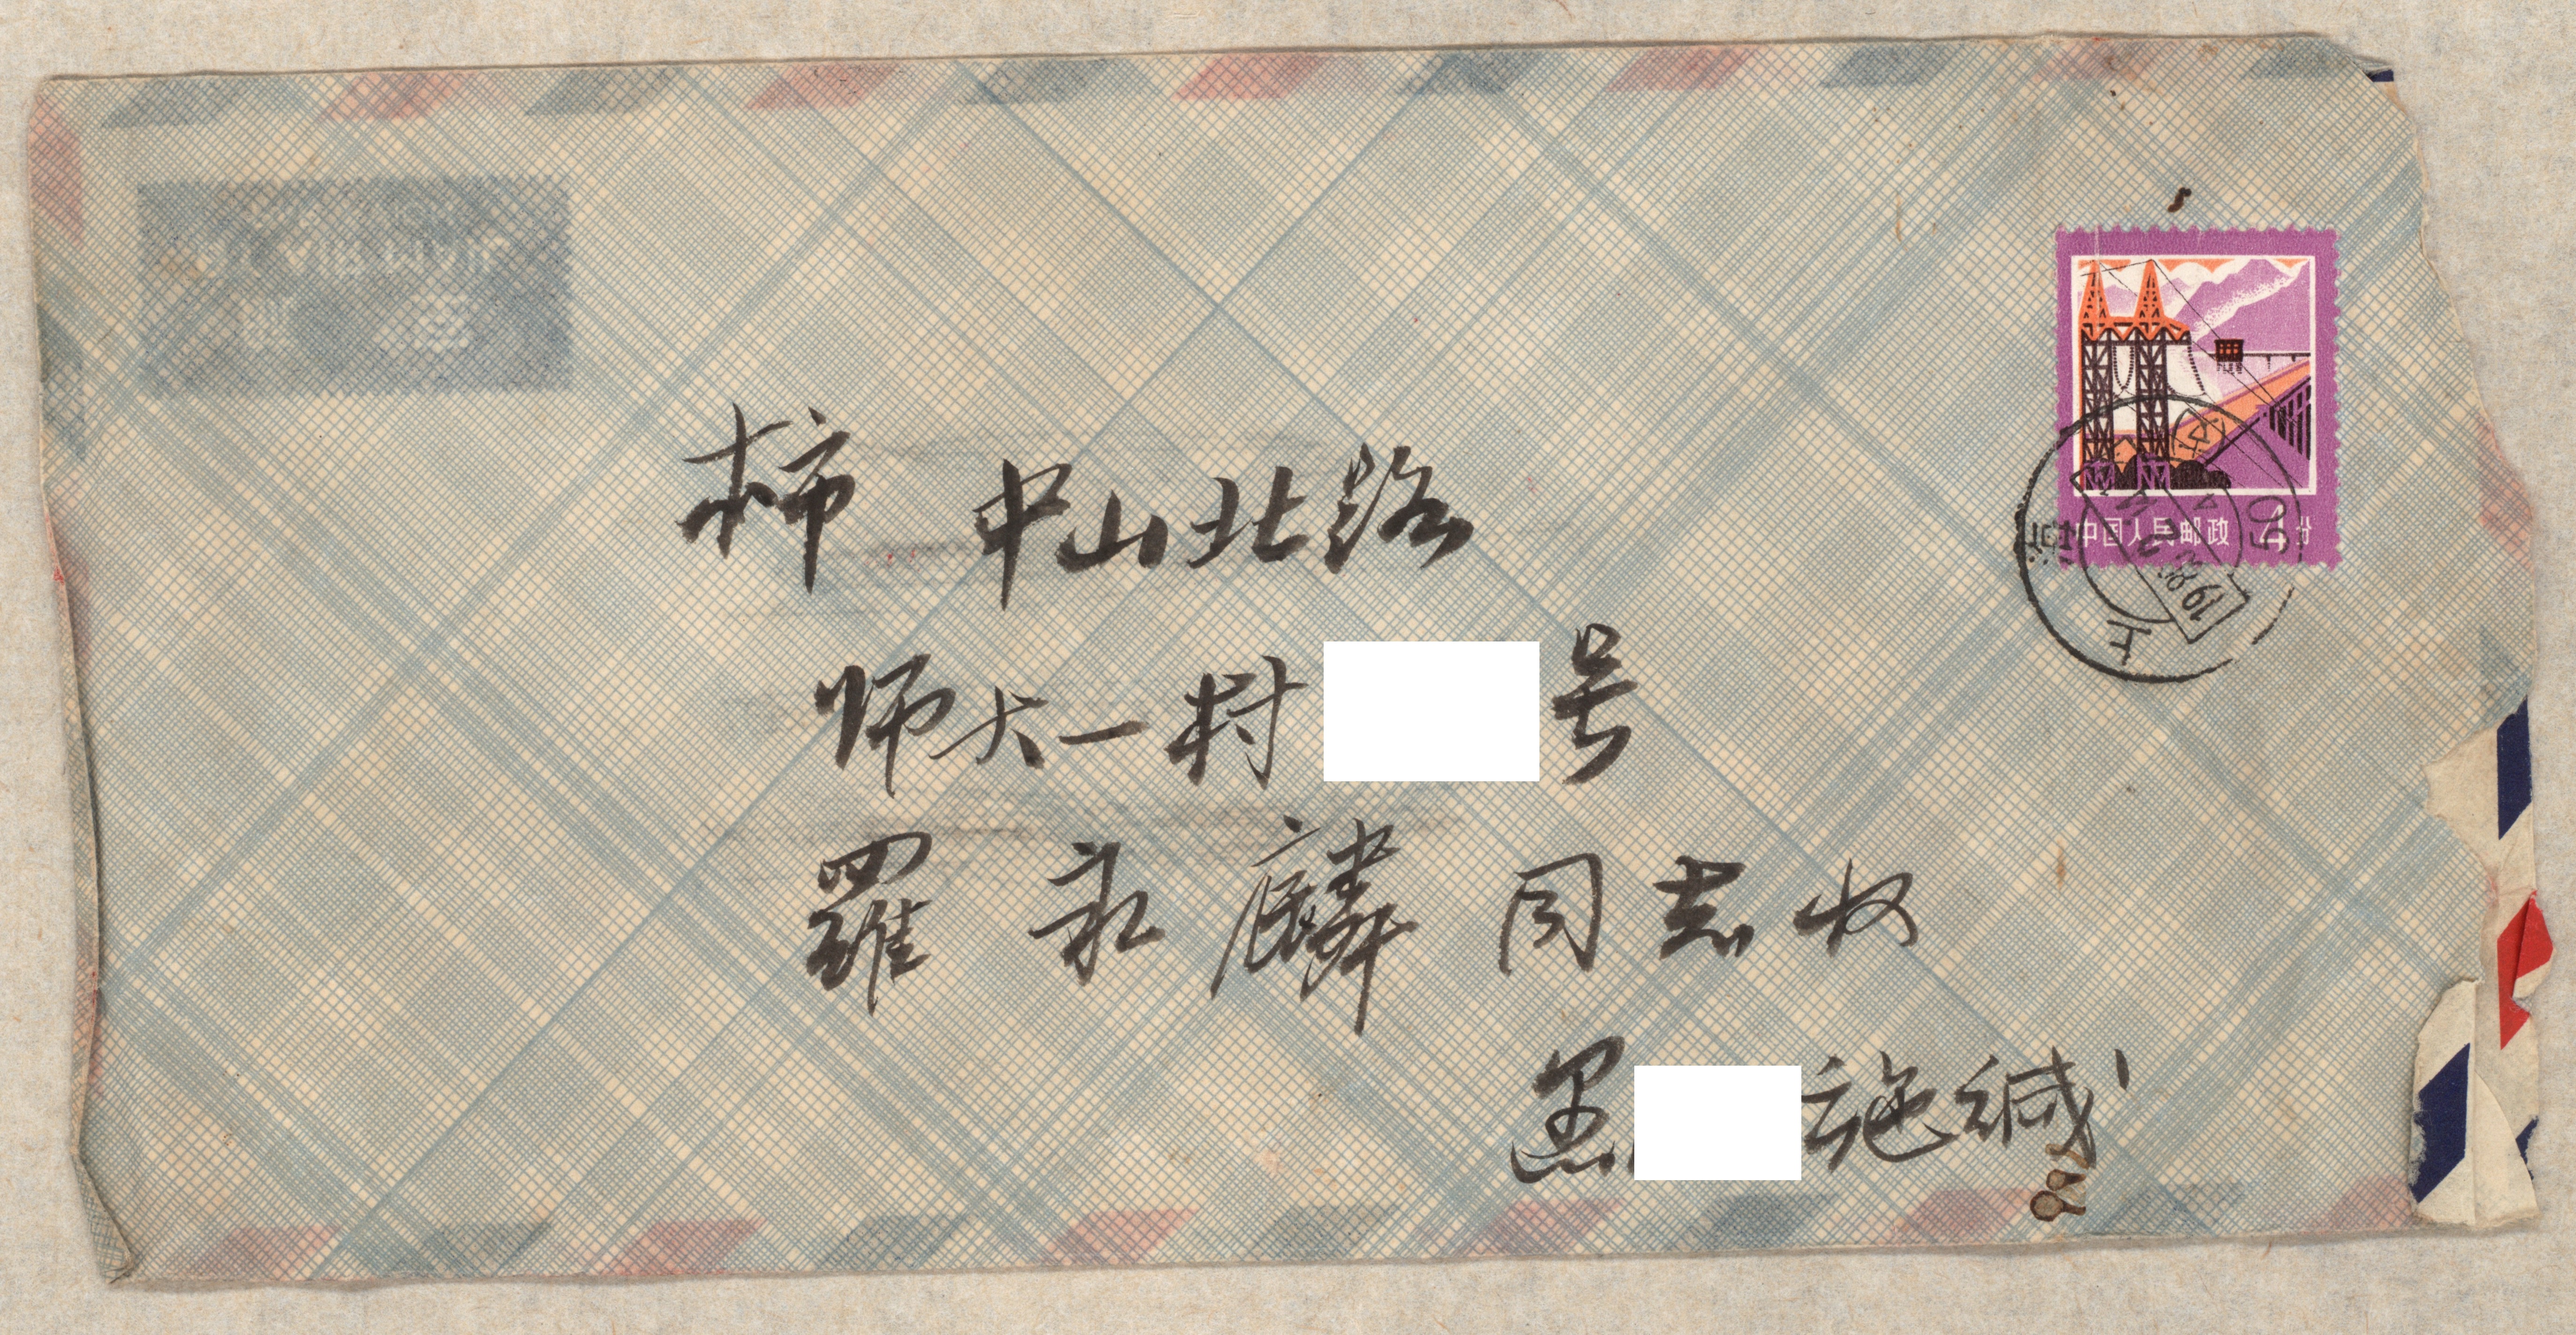 本市 中山北路
师大一村 号
羅永麟 同志收
愚 施缄
中国人民邮政 4分
上